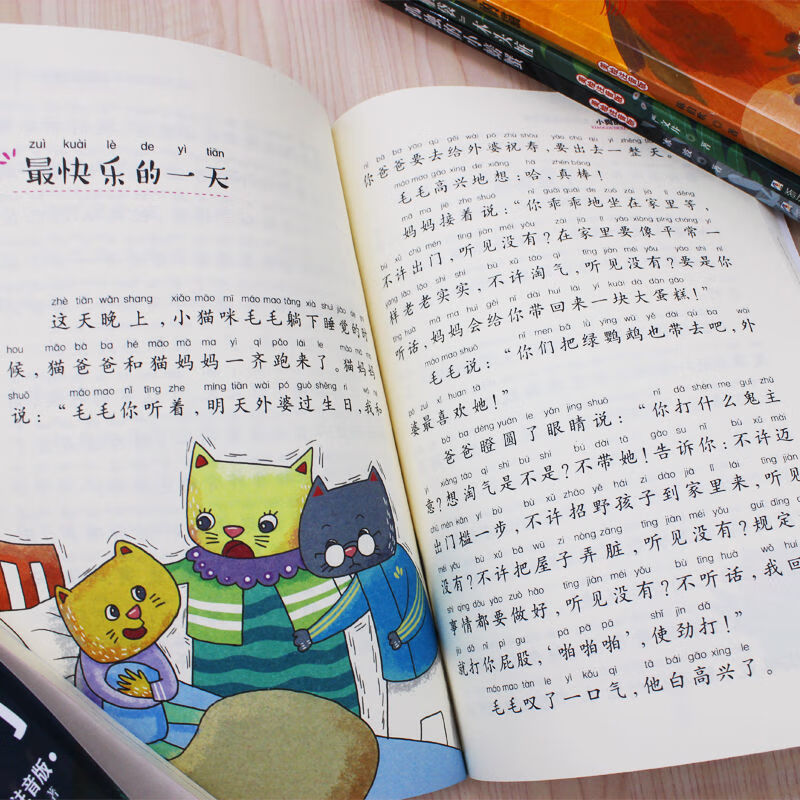 zuì kuài lè de yì tiān
最快乐的一天
zhè tiān wǎn shang xiǎo māo mī máo mao tǎng xià shuì jiào de
这天晚上，小猫咪毛毛躺下睡觉的时
hou māo bà ba hé māo mā ma yì qí pǎo lái le
候，猫爸爸和猫妈妈一齐跑来了。猫妈妈
shuō máo mao nǐ tīng zhe míng tiān wài pó guò shēng rì
说：“毛毛你听着，明天外婆过生日，我和
nǐ bà ba yào qù gěi wài pó zhù shòu yào chū qù yì zhěng
你爸爸要去给外婆祝寿，要出去一整天。”
máo mao gāo xìng de xiǎng hā zhēn bàng
毛毛高兴地想：哈，真棒！
mā ma jiē zhe shuō nǐ guāi guāi de zuò zài jiā li děng
妈妈接着说：“你乖乖地坐在家里等，
bù xǔ chū mén tīng jiàn méi yǒu zài jiā li yào xiàng píng cháng yí
不许出门，听见没有？在家里要像平常一
yàng lǎo lǎo shí shí bù xǔ táo qì tīng jiàn méi yǒu yào shi nǐ
样老老实实，不许淘气，听见没有？要是你
tīng huà mā ma huì gěi nǐ dài huí lái yí kuài dà dàn gāo
听话，妈妈会给你带回来一块大蛋糕！”
máo mao shuō nǐ men bǎ lǜ yīng wǔ yě dài qù ba wài
毛毛说：“你们把绿鹦鹉也带去吧，外
pó zuì xǐ huan tā
婆最喜欢她！”
bà ba dèng yuán le yǎn jing shuō nǐ dǎ shén me guǐ zhǔ
爸爸瞪圆了眼睛说：“你打什么鬼主
yi xiǎng táo qì shì bú shì bú dài tā gào su nǐ bù xǔ mài
意？想淘气是不是？不带她！告诉你：不许迈
chū mén kǎn yí bù bù xǔ zhāo yě hái zi dào jiā li lái tīng jiàn
出门槛一步，不许招野孩子到家里来，听见
méi yǒu bù xǔ bǎ wū zi nòng zāng tīng jiàn méi yǒu guī dìng
没有？不许把屋子弄脏，听见没有？规定
shì qing dōu yào zuò hǎo tīng jiàn méi yǒu bù tīng huà wǒ huí
事情都要做好，听见没有？不听话，我回
jiù dǎ nǐ pì gu pā pā pā shǐ jìn dǎ
就打你屁股，‘啪啪啪’，使劲打！”
máo mao tàn le yì kǒu qì tā bái gāo xìng le
毛毛叹了一口气，他白高兴了。